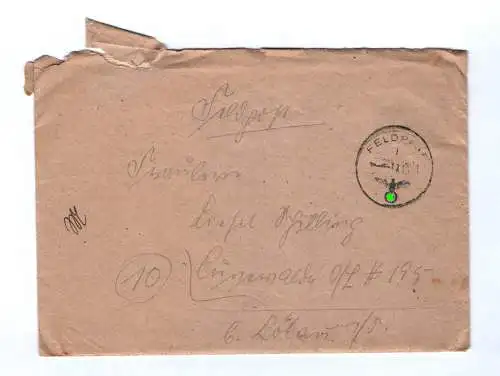 Feldpost
FELDPOST
Fräulein
Liesel Schilling
(10) Cunewalde O/L # 195
b. Löbau i/S.